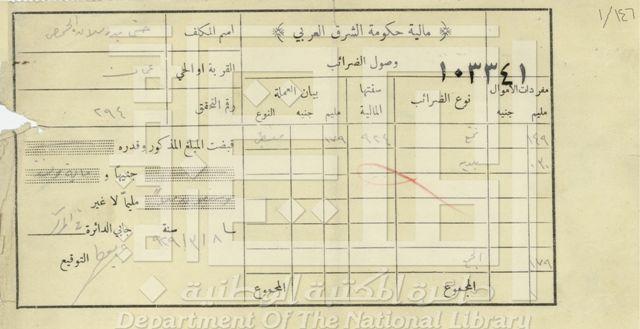 ١/١٤٦
﴿ مالية حكومة الشرق العربي ﴾
وصول الضرائب
١٠٣٣٤١
اسم المكلف
القرية او الحي عمان
رقم التحقق ٢٩٤
مفردات الأموال
مليم جنيه
نوع الضرائب
سنتها المالية
بيان العملة
مليم جنيه النوع
١٤٩
٩٢٤
١٧٩
قبضت المبلغ المذكور وقدره
٠٣٠
جنيها و
مليما لا غير
جابي الدائرة
سنة ٩٢٩/٣/١٨
التوقيع
١٧٩
المجموع
المجموع
دائرة المكتبة الوطنية
Department Of The National Library